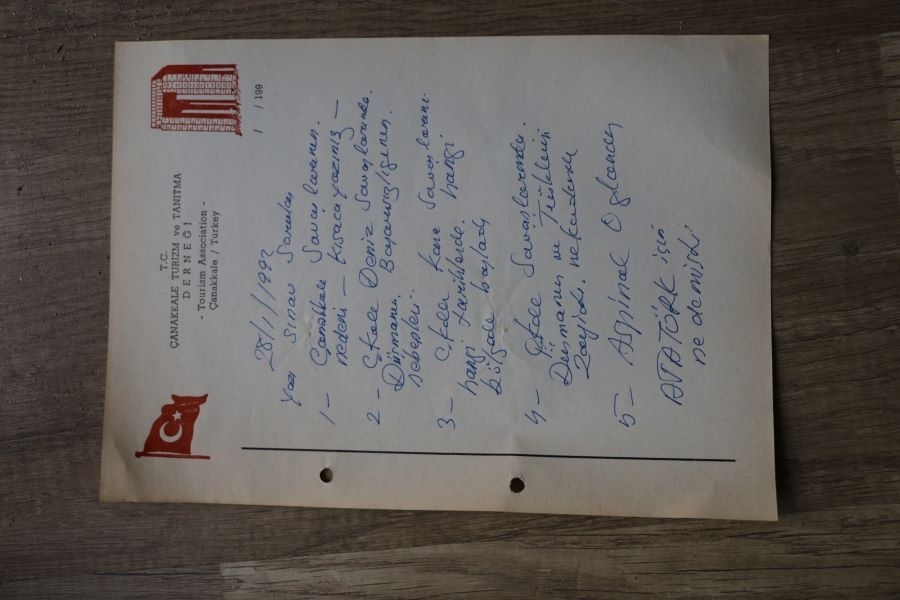 T.C.
ÇANAKKALE TURİZM ve TANITMA
DERNEĞİ
- Tourism Association -
Çanakkale / Turkey
/ / 199
25/1/1992
Yazı Sınav Soruları
1 - Çanakkale Savaşlarının
nedeni - Kısaca yazınız -
2 - Çkale Deniz Savaşlarında
Düşmanın Başarısızlığının
sebepleri
3 - Çkale Kara Savaşları
hangi tarihlerde hangi
bölgede başladı
4 - Çkale Savaşlarında
Düşmanın ve Türklerin
Zayiatı ne kadardır
5 - Aspinal Oglander
ATATÜRK için
ne demişti